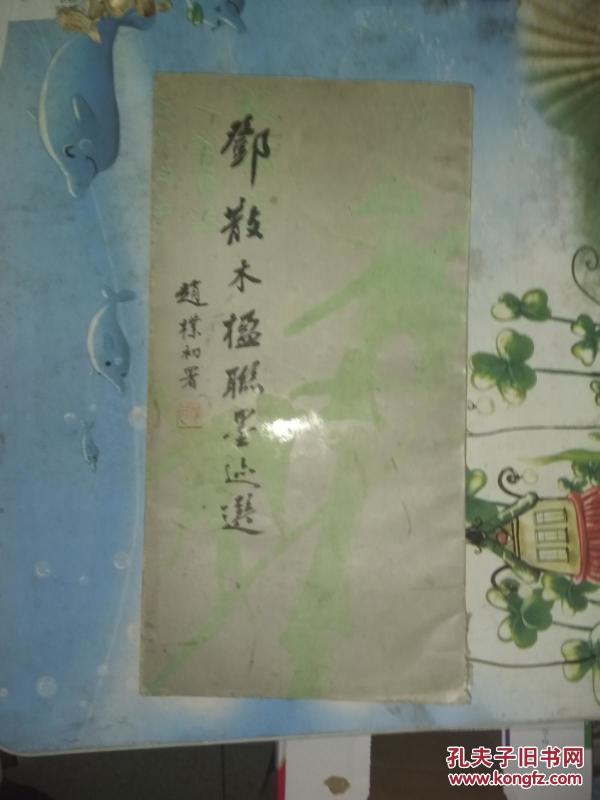 鄧散木楹聯墨迹選
趙樸初署
孔夫子旧书网
www.kongfz.com